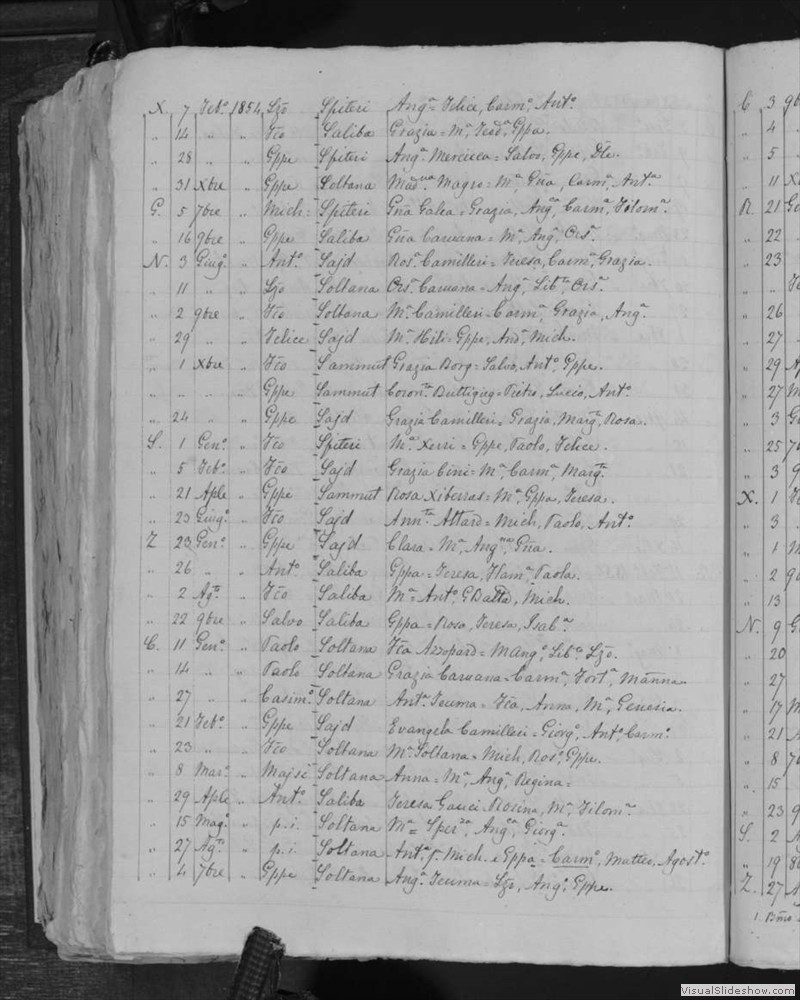 X. 7 Feb.o 1854 Lzo Spiteri Ang.a = Felice, Carm.o, Ant.o
„ 14 „ „ Fco Saliba Grazia = M.a, Teod.a, Gppa.
„ 28 „ „ Gppe Spiteri Ang.a Mercieca = Salvo, Gppe,
„ 31 Xbre „ Gppe Soltana Magro = M.a, Gna, Carm.a, Ant.a
G. 5 7bre „ Mich. Spiteri Gna Galea = Grazia, Ang.a, Carm.a, Filom.a
„ 16 9bre „ Gppe Saliba Gna Caruana = M.a, Ang.a, Crs.a
N. 3 Giug.o „ Ant.o Sajd Ros.a Camilleri = Teresa, Carm.a, Grazia.
„ 11 „ „ Lzo Soltana Crs.a Caruana = Ang.a, Lib.ta, Crs.a
„ 2 9bre „ Fco Soltana M.a Camilleri = Carm.a, Grazia, Ang.a
„ 29 „ „ Felice Sajd M.a Hili = Gppe, And.a, Mich.
„ 1 Xbre „ Fco Sammut Grazia Borg = Salvo, Ant.o, Gppe.
„ „ „ „ Gppe Sammut Coron.ta Buttigieg = Pietro, Lucio, Ant.o
„ 24 „ „ Gppe Sajd Grazia Camilleri = Grazia, Marg.a, Rosa.
S. 1 Gen.o „ Fco Spiteri M.a Xerri = Gppe, Paolo, Felice.
„ 5 Feb.o „ Fco Sajd Grazia Cini = M.a, Carm.a, Marg.ta
„ 21 Aple „ Gppe Sammut Rosa Xiberras = M.a, Gppa, Teresa.
„ 23 Giug.o „ Fco Sajd Ann.ta Attard = Mich, Paolo, Ant.o
Z 23 Gen.o „ Gppe Sajd Clara = M.a, Ang.na, Gna.
„ 26 „ „ Ant.o Saliba Gppa = Teresa, Paola.
„ 2 Ag.to „ Fco Saliba M.a = Ant.o, GBatta, Mich.
„ 22 9bre „ Salvo Saliba Gppa = Rosa, Teresa, Isab.a
C. 11 Gen.o „ Paolo Soltana Fca Azzopard = M.Ang.o, Lib.o, Lzo.
„ 14 „ „ Paolo Soltana Grazia Caruana = Carm.a, Fort.a, Mânna.
„ 27 „ „ Casim.o Soltana Ant.a Tcuma = Fca, Anna, M.a, Genesia.
„ 21 Feb.o „ Gppe Sajd Evangela Camilleri = Giorg.o, Ant.o, Carm.o
„ 23 „ „ Fco Soltana M.a Soltana = Mich, Ros.o, Gppe.
„ 8 Mar.o „ Majsi Soltana Anna = M.a, Ang.a, Regina =
„ 29 Aple „ Ant.o Saliba Teresa Gauci = Rosina, M.a, Filom.a
„ 15 Mag.o „ p.i. Soltana M.a = Sper.za, Ang.ca, Giorg.a
„ 27 Ag.to „ p.i. Soltana Ant.a f. Mich. e Gppa = Carm.o, Matteo, Agost.o
„ 4 7bre „ Gppe Soltana Ang.a Tcuma = Lzo, Ang.o, Gppe.
C 3 9b
„ 4
„ 5
„ 11 X
R. 21 G
„ 22
„ 23
„ 26
„ 27
„ 29 A
„ 27 M
„ 3 G
„ 25 7
„ 3 9
X. 1
„ 3
„ 1 M
„ 2 9
„ 13
N. 9 G
„ 20
„ 27
„ 17 M
„ 21 A
„ 8 7
„ 15
„ 23 9
S. 2 A
„ 19 8
Z. 27 A
1. Bmo
VisualSlideshow.com